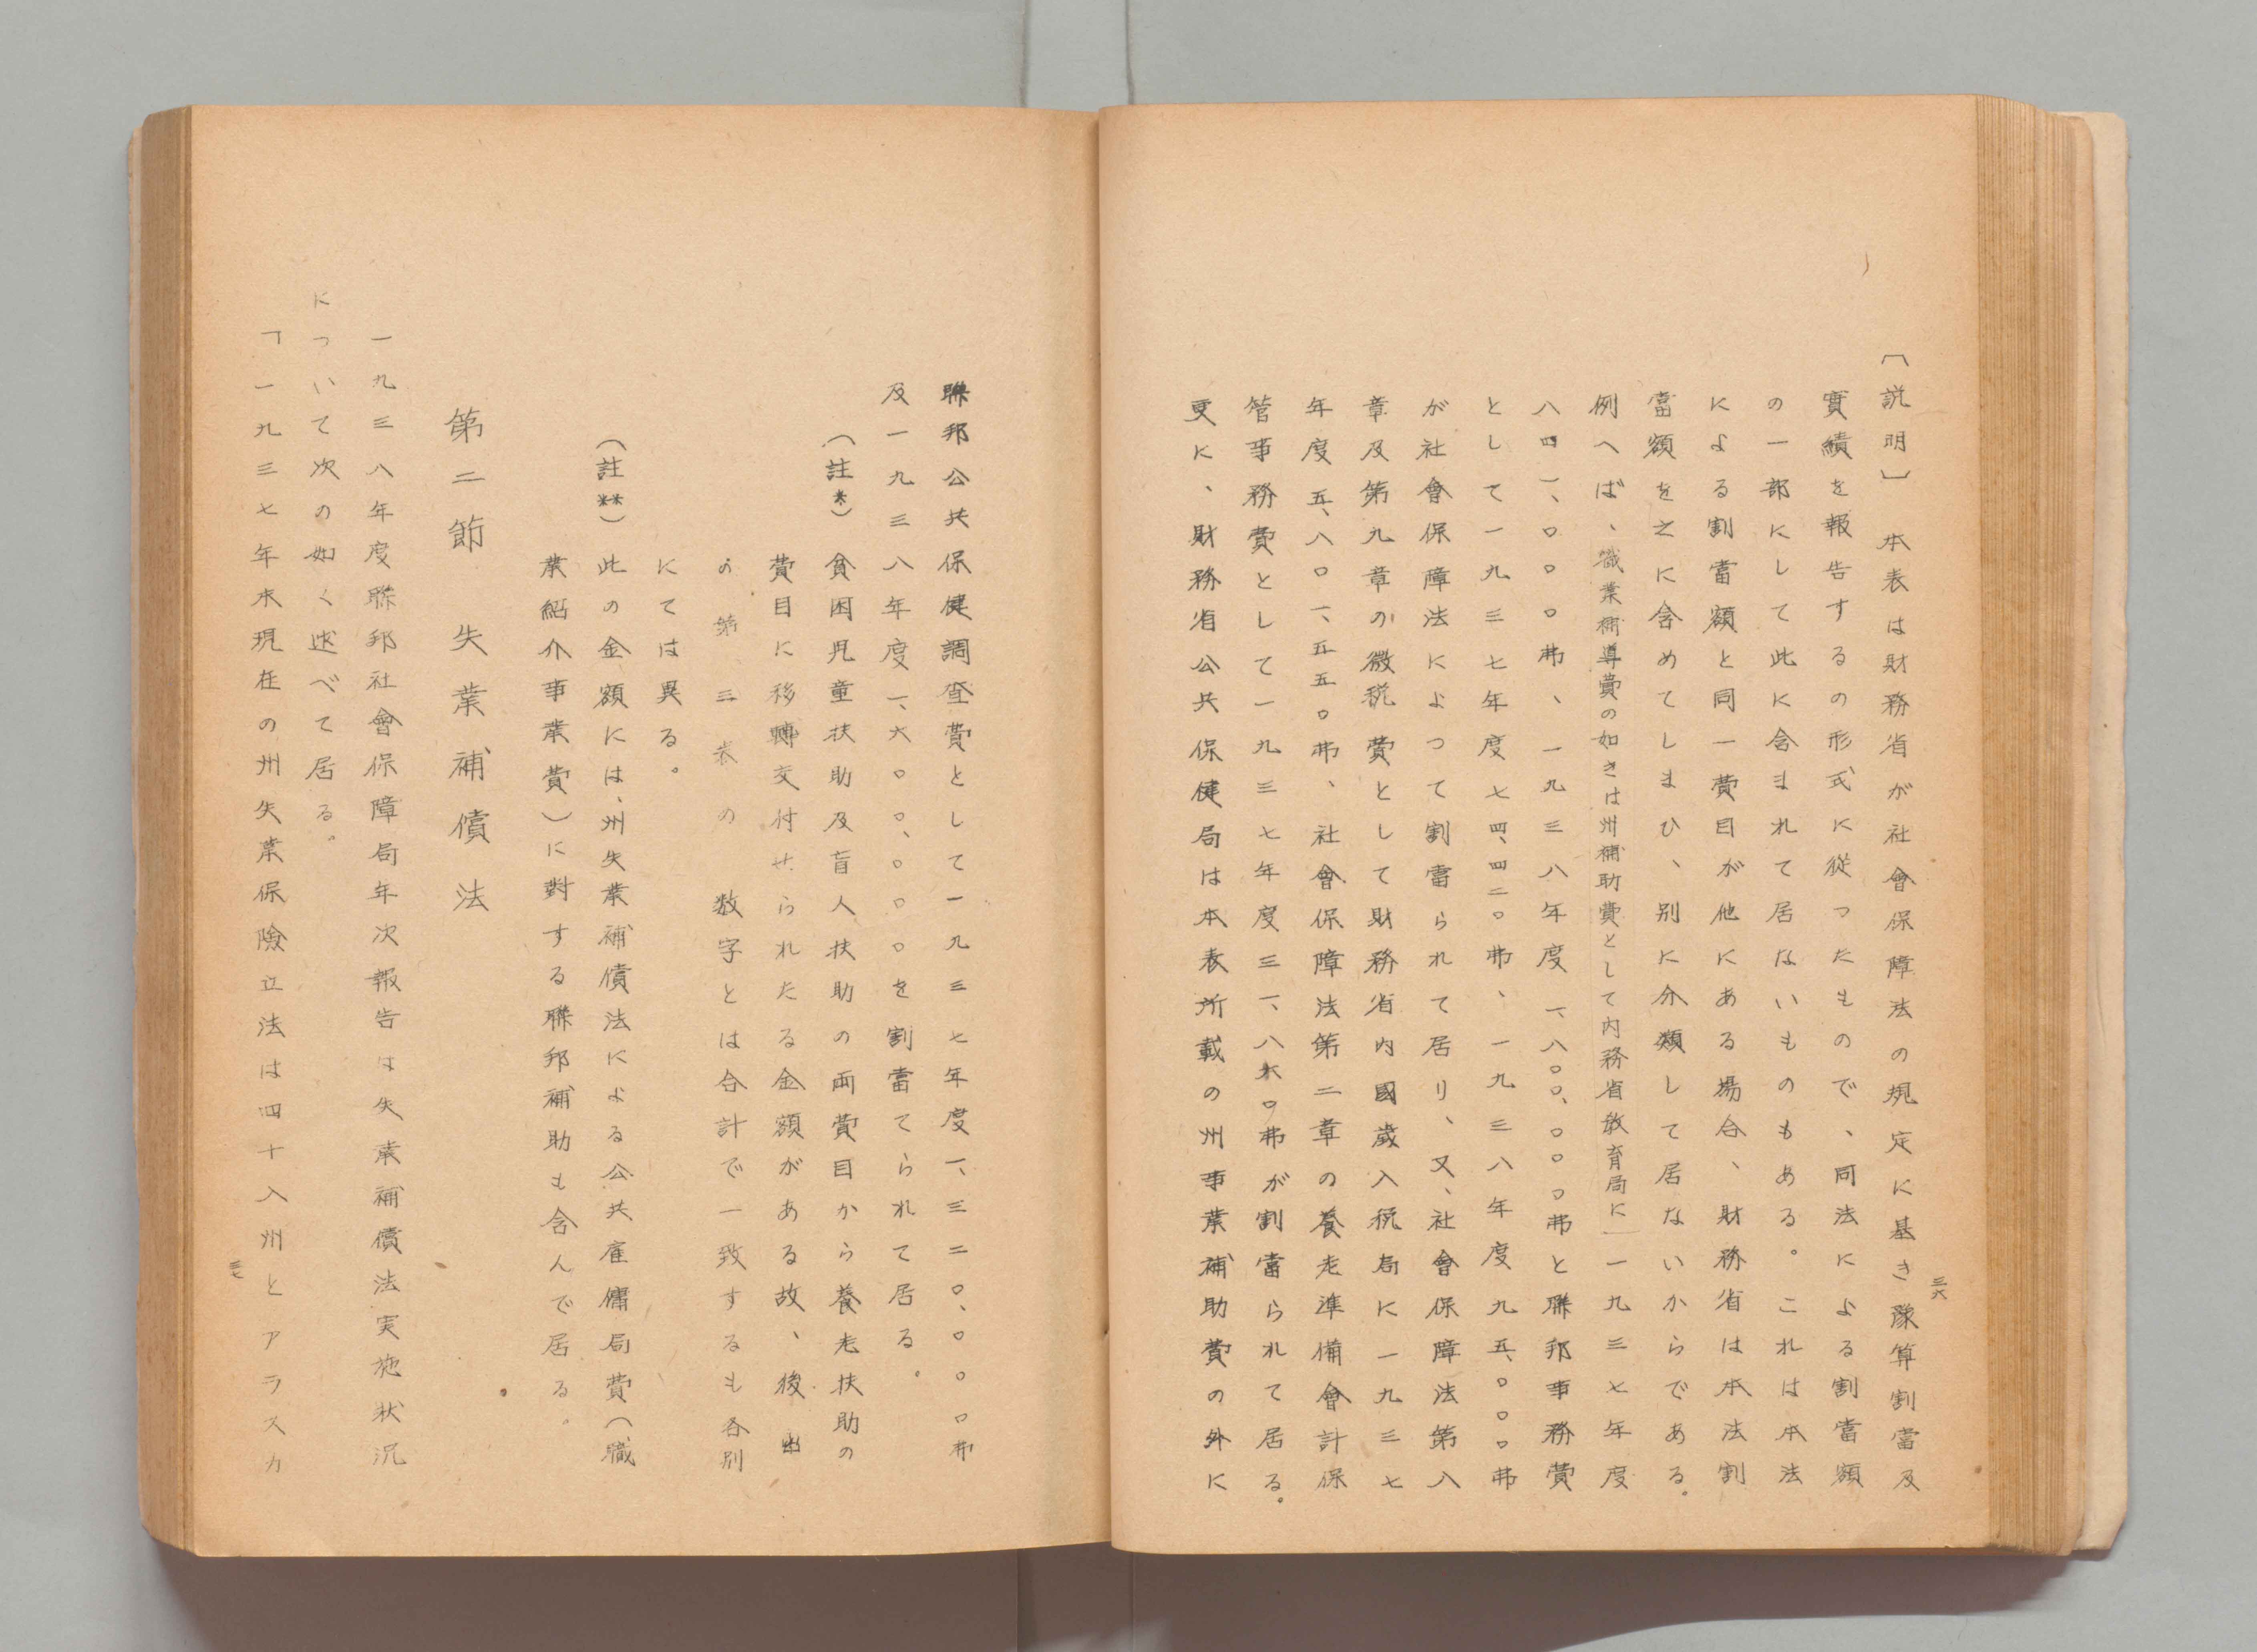 三六
〔説明〕 本表は財務省が社會保障法の規定に基き豫算割當及
實績を報告するの形式に從つたもので、同法による割當額
の一部にして此に含まれて居ないものもある。これは本法
による割當額と同一費目が他にある場合、財務省は本法割
當額を之に含めてしまひ、別に分類して居ないからである。
例へば、職業補導費の如きは州補助費として内務省敎育局に一九三七年度
八四一、〇〇〇弗、一九三八年度一、八〇〇、〇〇〇弗と聯邦事務費
として一九三七年度七四、四二〇弗、一九三八年度九五、〇〇〇弗
が社會保障法によつて割當られて居り、又、社會保障法第八
章及第九章の徴税費として財務省内國歳入税局に一九三七
年度五、八〇一、五五〇弗、社會保障法第二章の養老準備會計保
管事務費として一九三七年度三一、八六〇弗が割當られて居る。
更に、財務省公共保健局は本表所載の州事業補助費の外に
聯邦公共保健調査費として一九三七年度一、三二〇、〇〇〇弗
及一九三八年度一、六〇〇、〇〇〇を割當てられて居る。
(註*) 貧困児童扶助及盲人扶助の両費目から養老扶助の
費目に移轉交付せられたる金額がある故、後出
の第三表の数字とは合計で一致するも各別
にては異る。
(註**) 此の金額には、州失業補償法による公共雇傭局費(職
業紹介事業費)に對する聯邦補助も含んで居る。
第二節 失業補償法
一九三八年度聯邦社會保障局年次報告は失業補償法実施状況
について次の如く述べて居る。
「一九三七年末現在の州失業保險立法は四十八州とアラスカ
三七